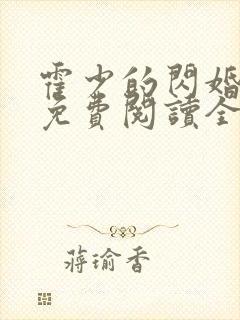 霍少的閃婚
免費閱讀全
蔣瑜香